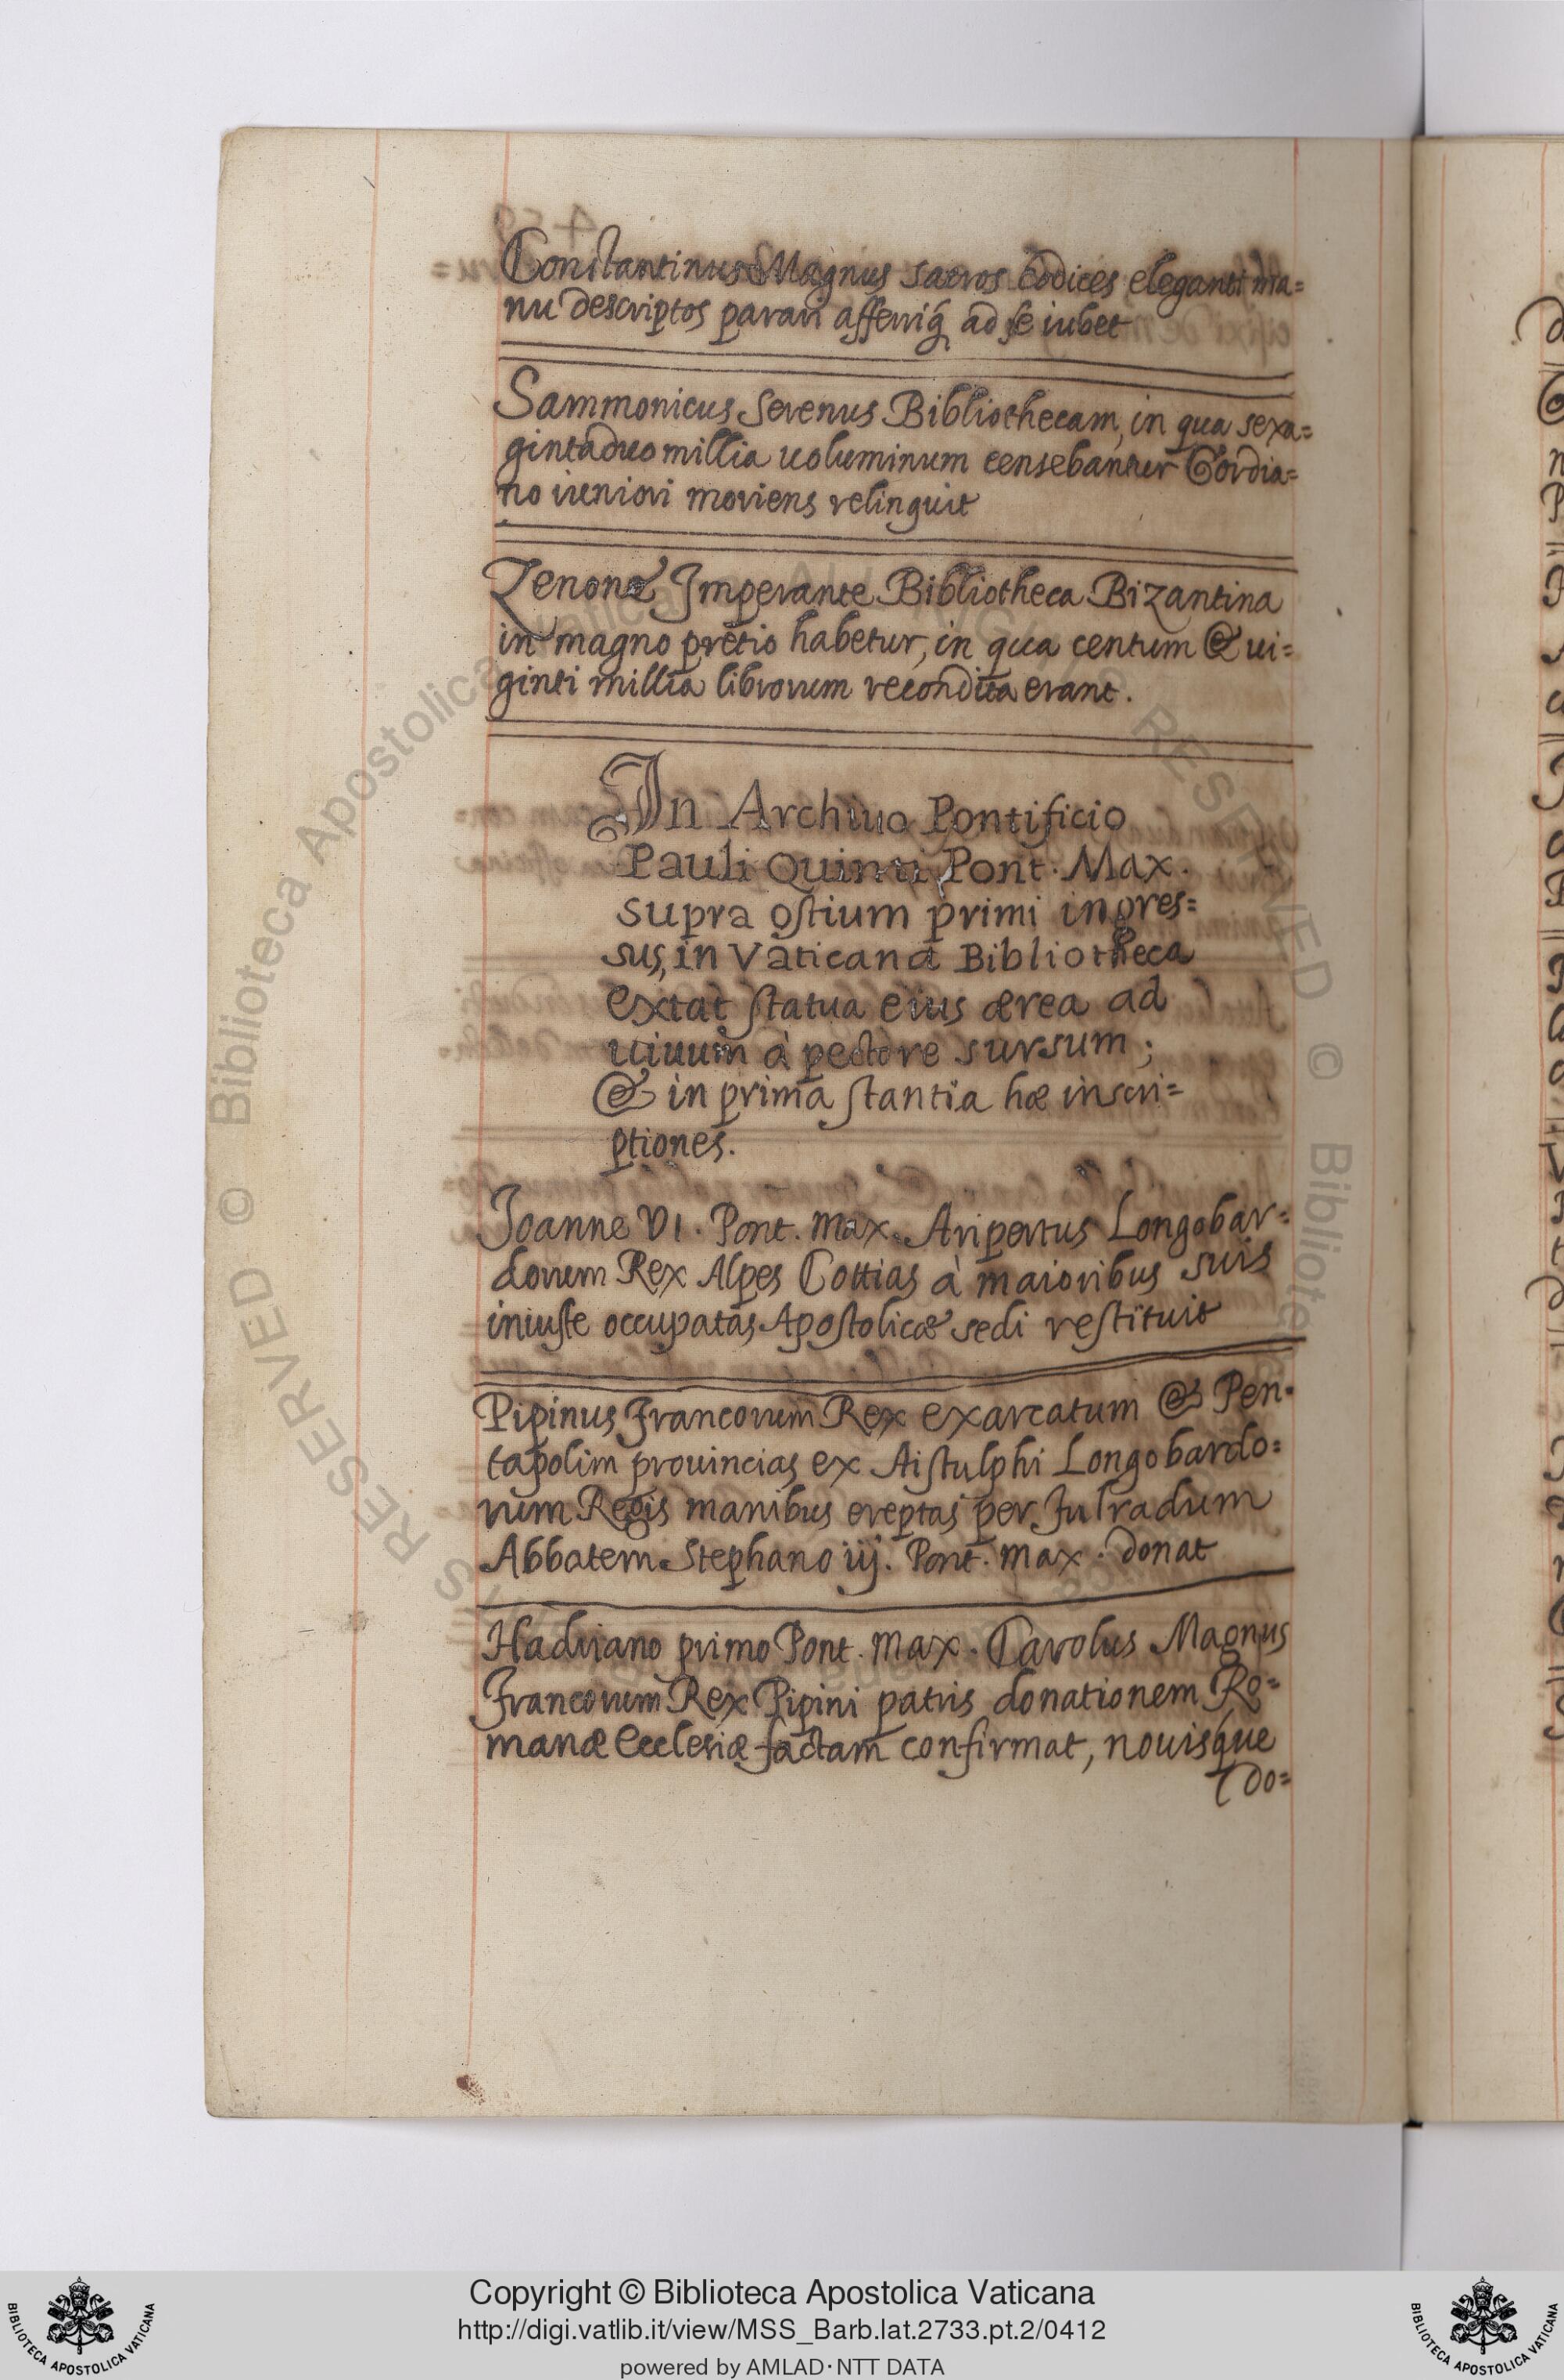 Constantinus Magnus sacros codices eleganti ma=
nu descriptos parari afferriq́ ad se iubet
Sammonicus Serenus Bibliothecam, in qua sexa=
gintaduo millia uoluminum censebantur Gordia=
no iuniori moriens relinquit
Zenone Imperante Bibliotheca Bizantina
in magno pretio habetur, in qua centum & ui=
ginti millia librorum recondita erant.
In Archiuo Pontificio
Pauli Quinti Pont. Max.
supra ostium primi ingres=
sus, in Vaticana Bibliotheca
extat statua eius ærea ad
uiuum à pectore sursum;
& in prima stantia hæ inscri=
ptiones.
Joanne VI. Pont. Max. Aripertus Longobar=
dorum Rex Alpes Cottias à maioribus suis
iniuste occupatas Apostolicæ sedi restituit
Pipinus Francorum Rex exarcatum & Pen=
tapolim prouincias ex Aistulphi Longobardo=
rum Regis manibus ereptas per Fulradum
Abbatem Stephano iij. Pont. max. donat
Hadriano primo Pont. max. Carolus Magnus
Francorum Rex Pipini patris donationem Ro=
manæ Ecclesiæ factam confirmat, nouisque
do=
Copyright © Biblioteca Apostolica Vaticana
http://digi.vatlib.it/view/MSS_Barb.lat.2733.pt.2/0412
powered by AMLAD·NTT DATA
BIBLIOTECA APOSTOLICA VATICANA
BIBLIOTECA APOSTOLICA VATICANA